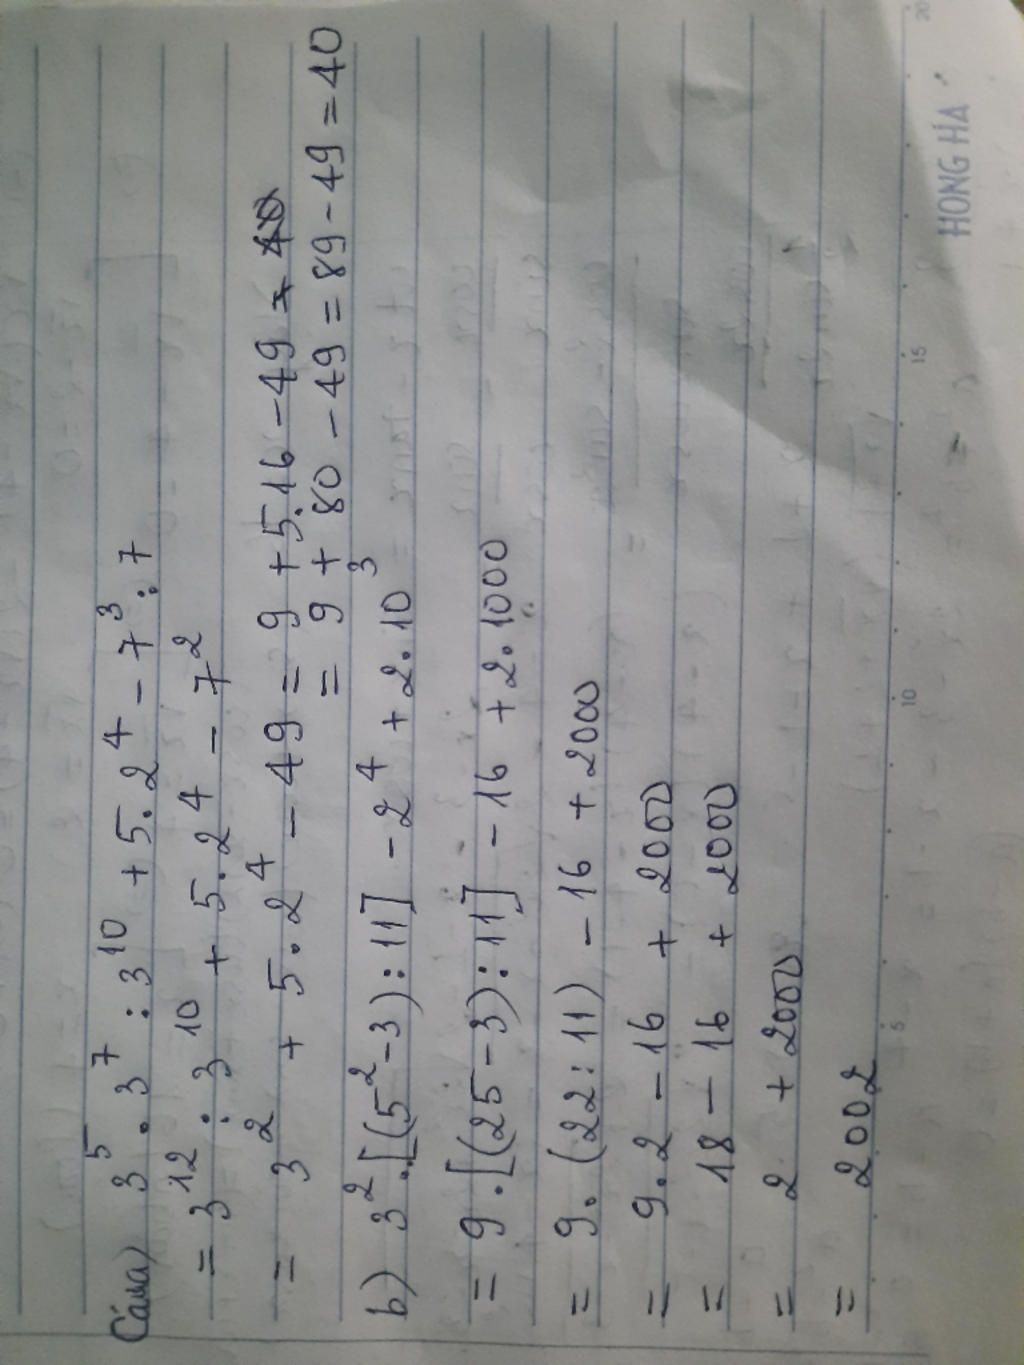 Câu a) 3⁵ . 3⁷ : 3¹⁰ + 5. 2⁴ - 7³ : 7
= 3¹² : 3¹⁰ + 5. 2⁴ - 7²
= 3² + 5. 2⁴ - 49 = 9 + 5.16 - 49
= 9 + 80 - 49 = 89 - 49 = 40
b) 3² . [(5² - 3) : 11] - 2⁴ + 2. 10³
= 9 . [(25 - 3) : 11] - 16 + 2. 1000
= 9. (22 : 11) - 16 + 2000
= 9. 2 - 16 + 2000
= 18 - 16 + 2000
= 2 + 2000
= 2002
5 10 15 20
HONG HA